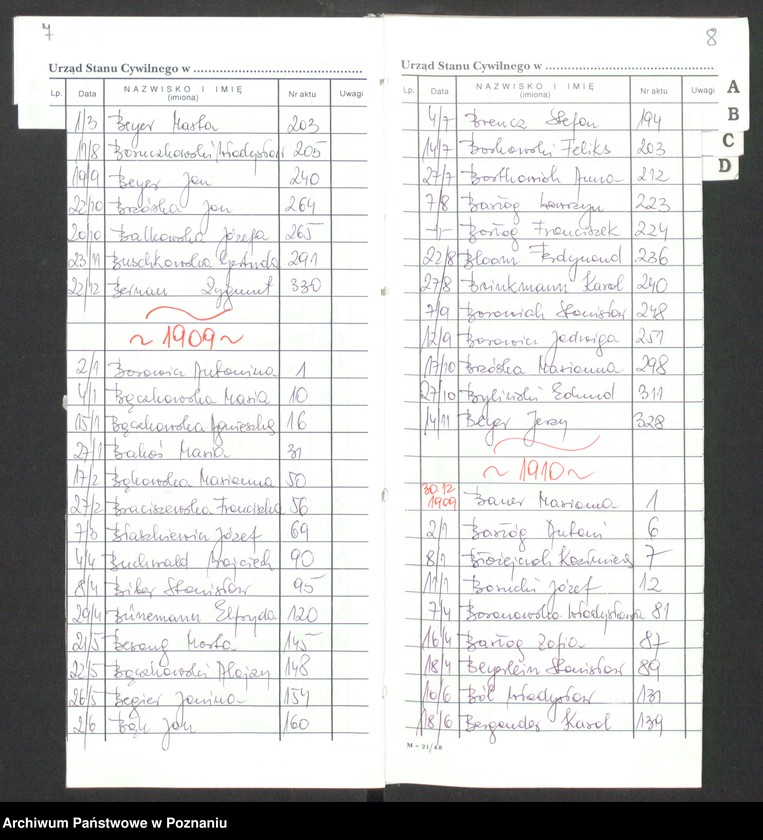 7
Urząd Stanu Cywilnego w
Lp. Data NAZWISKO I IMIĘ (imiona) Nr aktu Uwagi
1/3 Beyer Marta 203
17/8 Boruczkowski Władysław 205
19/9 Beyer Jan 240
22/10 Brzóska Jan 264
20/10 Bialkowska Józefa 265
23/11 Buschkowska Gertruda 291
22/12 Berman Zygmunt 330
~ 1909 ~
2/1 Borowicz Antonina 1
4/1 Bączkowska Maria 10
15/1 Bączkowska Agnieszka 16
27/1 Bakoś Maria 31
17/2 Bąkowska Marianna 50
27/2 Braciszewska Franciszka 56
7/3 Błaszkiewicz Józef 69
4/4 Buchwald Wojciech 90
8/4 Biker Stanisław 95
29/4 Bünemann Elfryda 120
21/5 Marta 145
22/5 Bączkowski Alojzy 148
26/5 Begier Janina 154
2/6 Bąk Jan 160
8
Urząd Stanu Cywilnego w
Lp. Data NAZWISKO I IMIĘ (imiona) Nr aktu Uwagi
A
B
C
D
4/7 Brencz Stefan 194
14/7 Borkowski Feliks 203
27/7 Bartkowiak Anna 212
7/8 Bartog Wawrzyn 223
-"- Bartog Franciszek 224
22/8 Bloom Ferdynand 236
27/8 Brinkmann Karol 240
7/9 Borowiak Stanisław 248
12/9 Borowicz Jadwiga 251
17/10 Brzóska Marianna 298
27/10 Byliński Edmund 311
14/11 Beyer Jerzy 328
~ 1910 ~
30.12 1909 Bauer Marianna 1
2/1 Antoni 6
8/1 Błożejczak Kazimierz 7
11/1 Borucki Józef 12
7/4 Boranowska Władysława 81
16/4 Zofia 87
18/4 Beyerlein Stanisław 89
10/6 Ból Władysław 131
18/6 Bergander Karol 139
M - 21/48
Archiwum Państwowe w Poznaniu